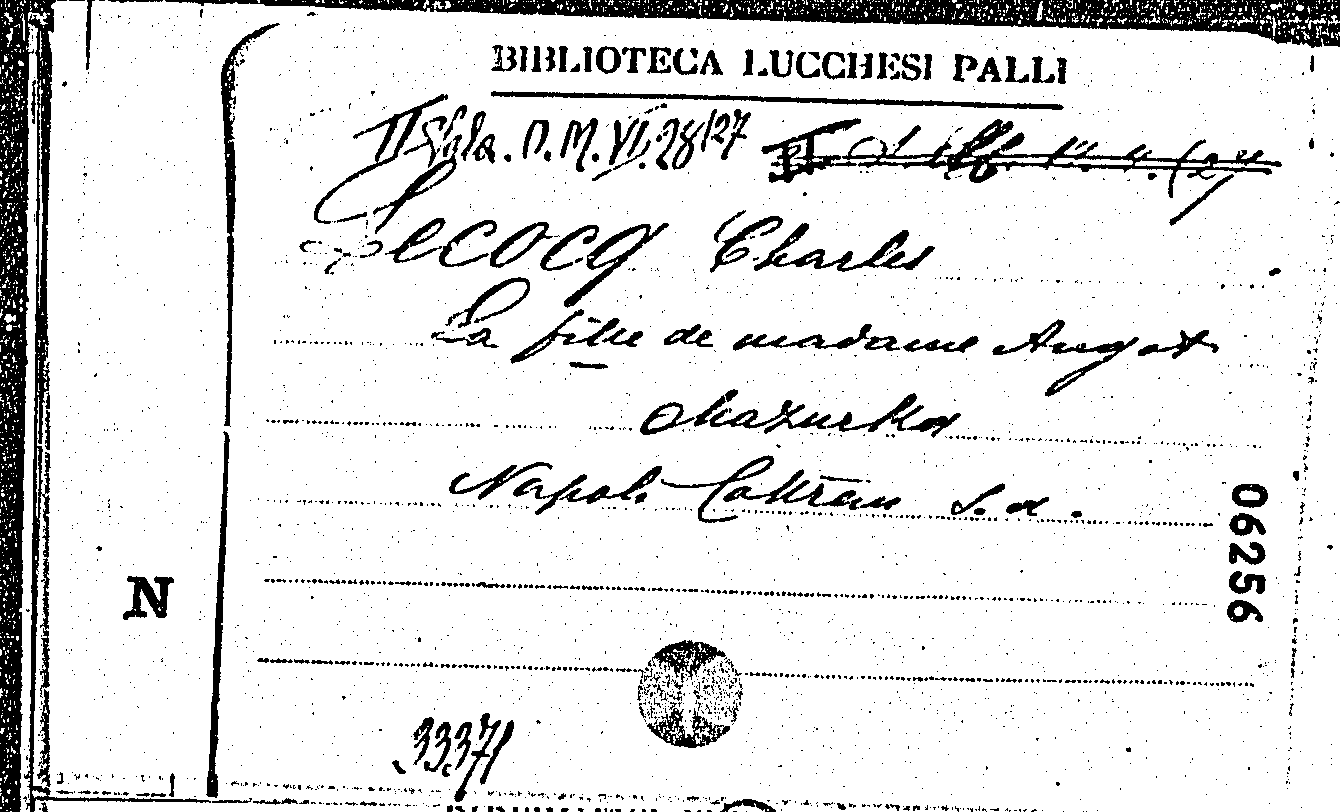 BIBLIOTECA LUCCHESI PALLI
II Sala. D. M. VI. 28/27
Lecocq Charles
La fille de madame Angot
Mazurka
Napoli Cottrau S. d.
06256
N
33371